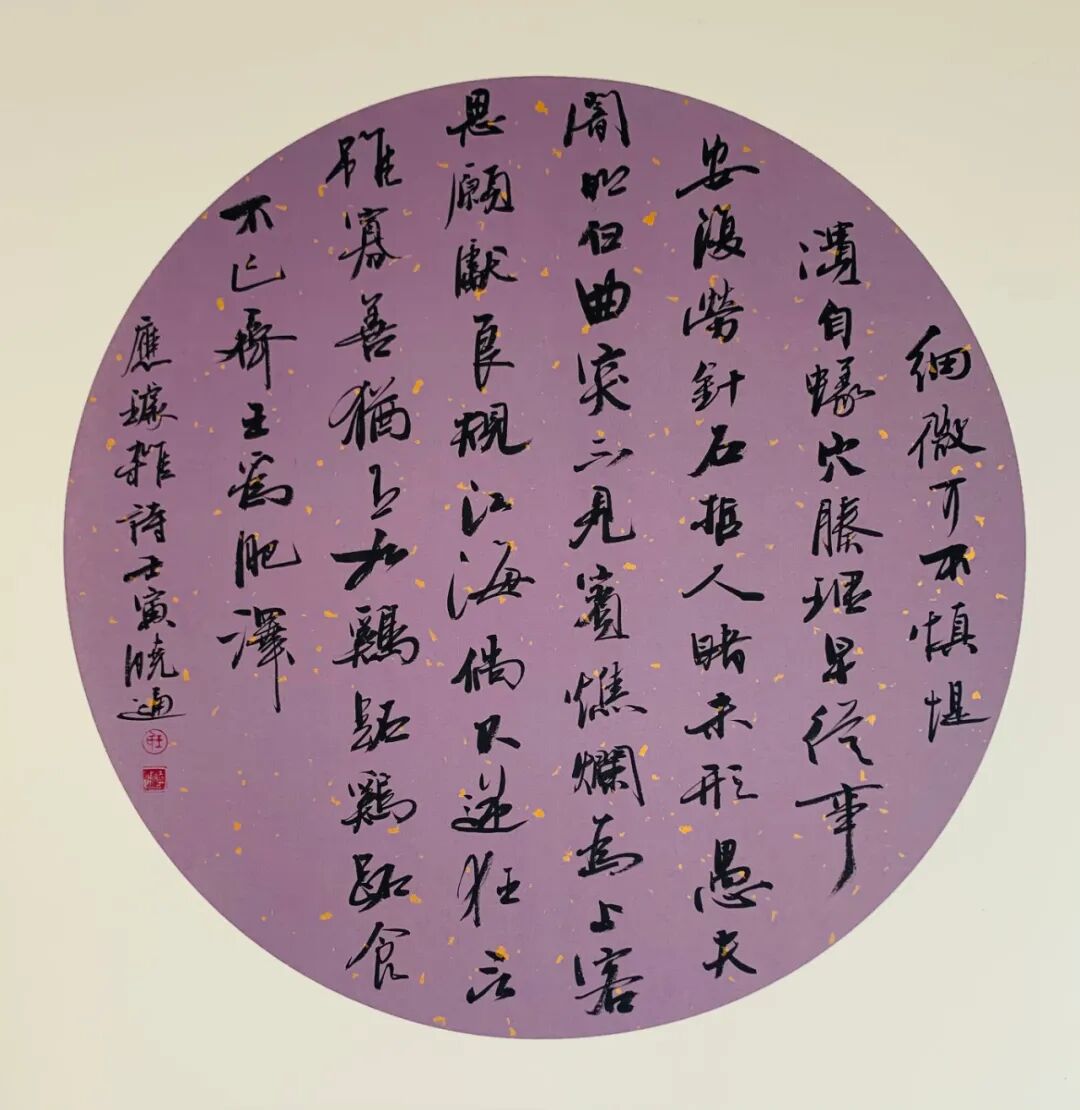 細微可不慎堤
潰自蟻穴腠理早從事
安復勞針石哲人睹未形愚夫
闇明白曲突不見賓燋爛為上客
思願獻良規江海倘不逆狂言
雖寡善猶有如鷄跖鷄跖食
不已齊王為肥澤
應璩雜詩壬寅曉通